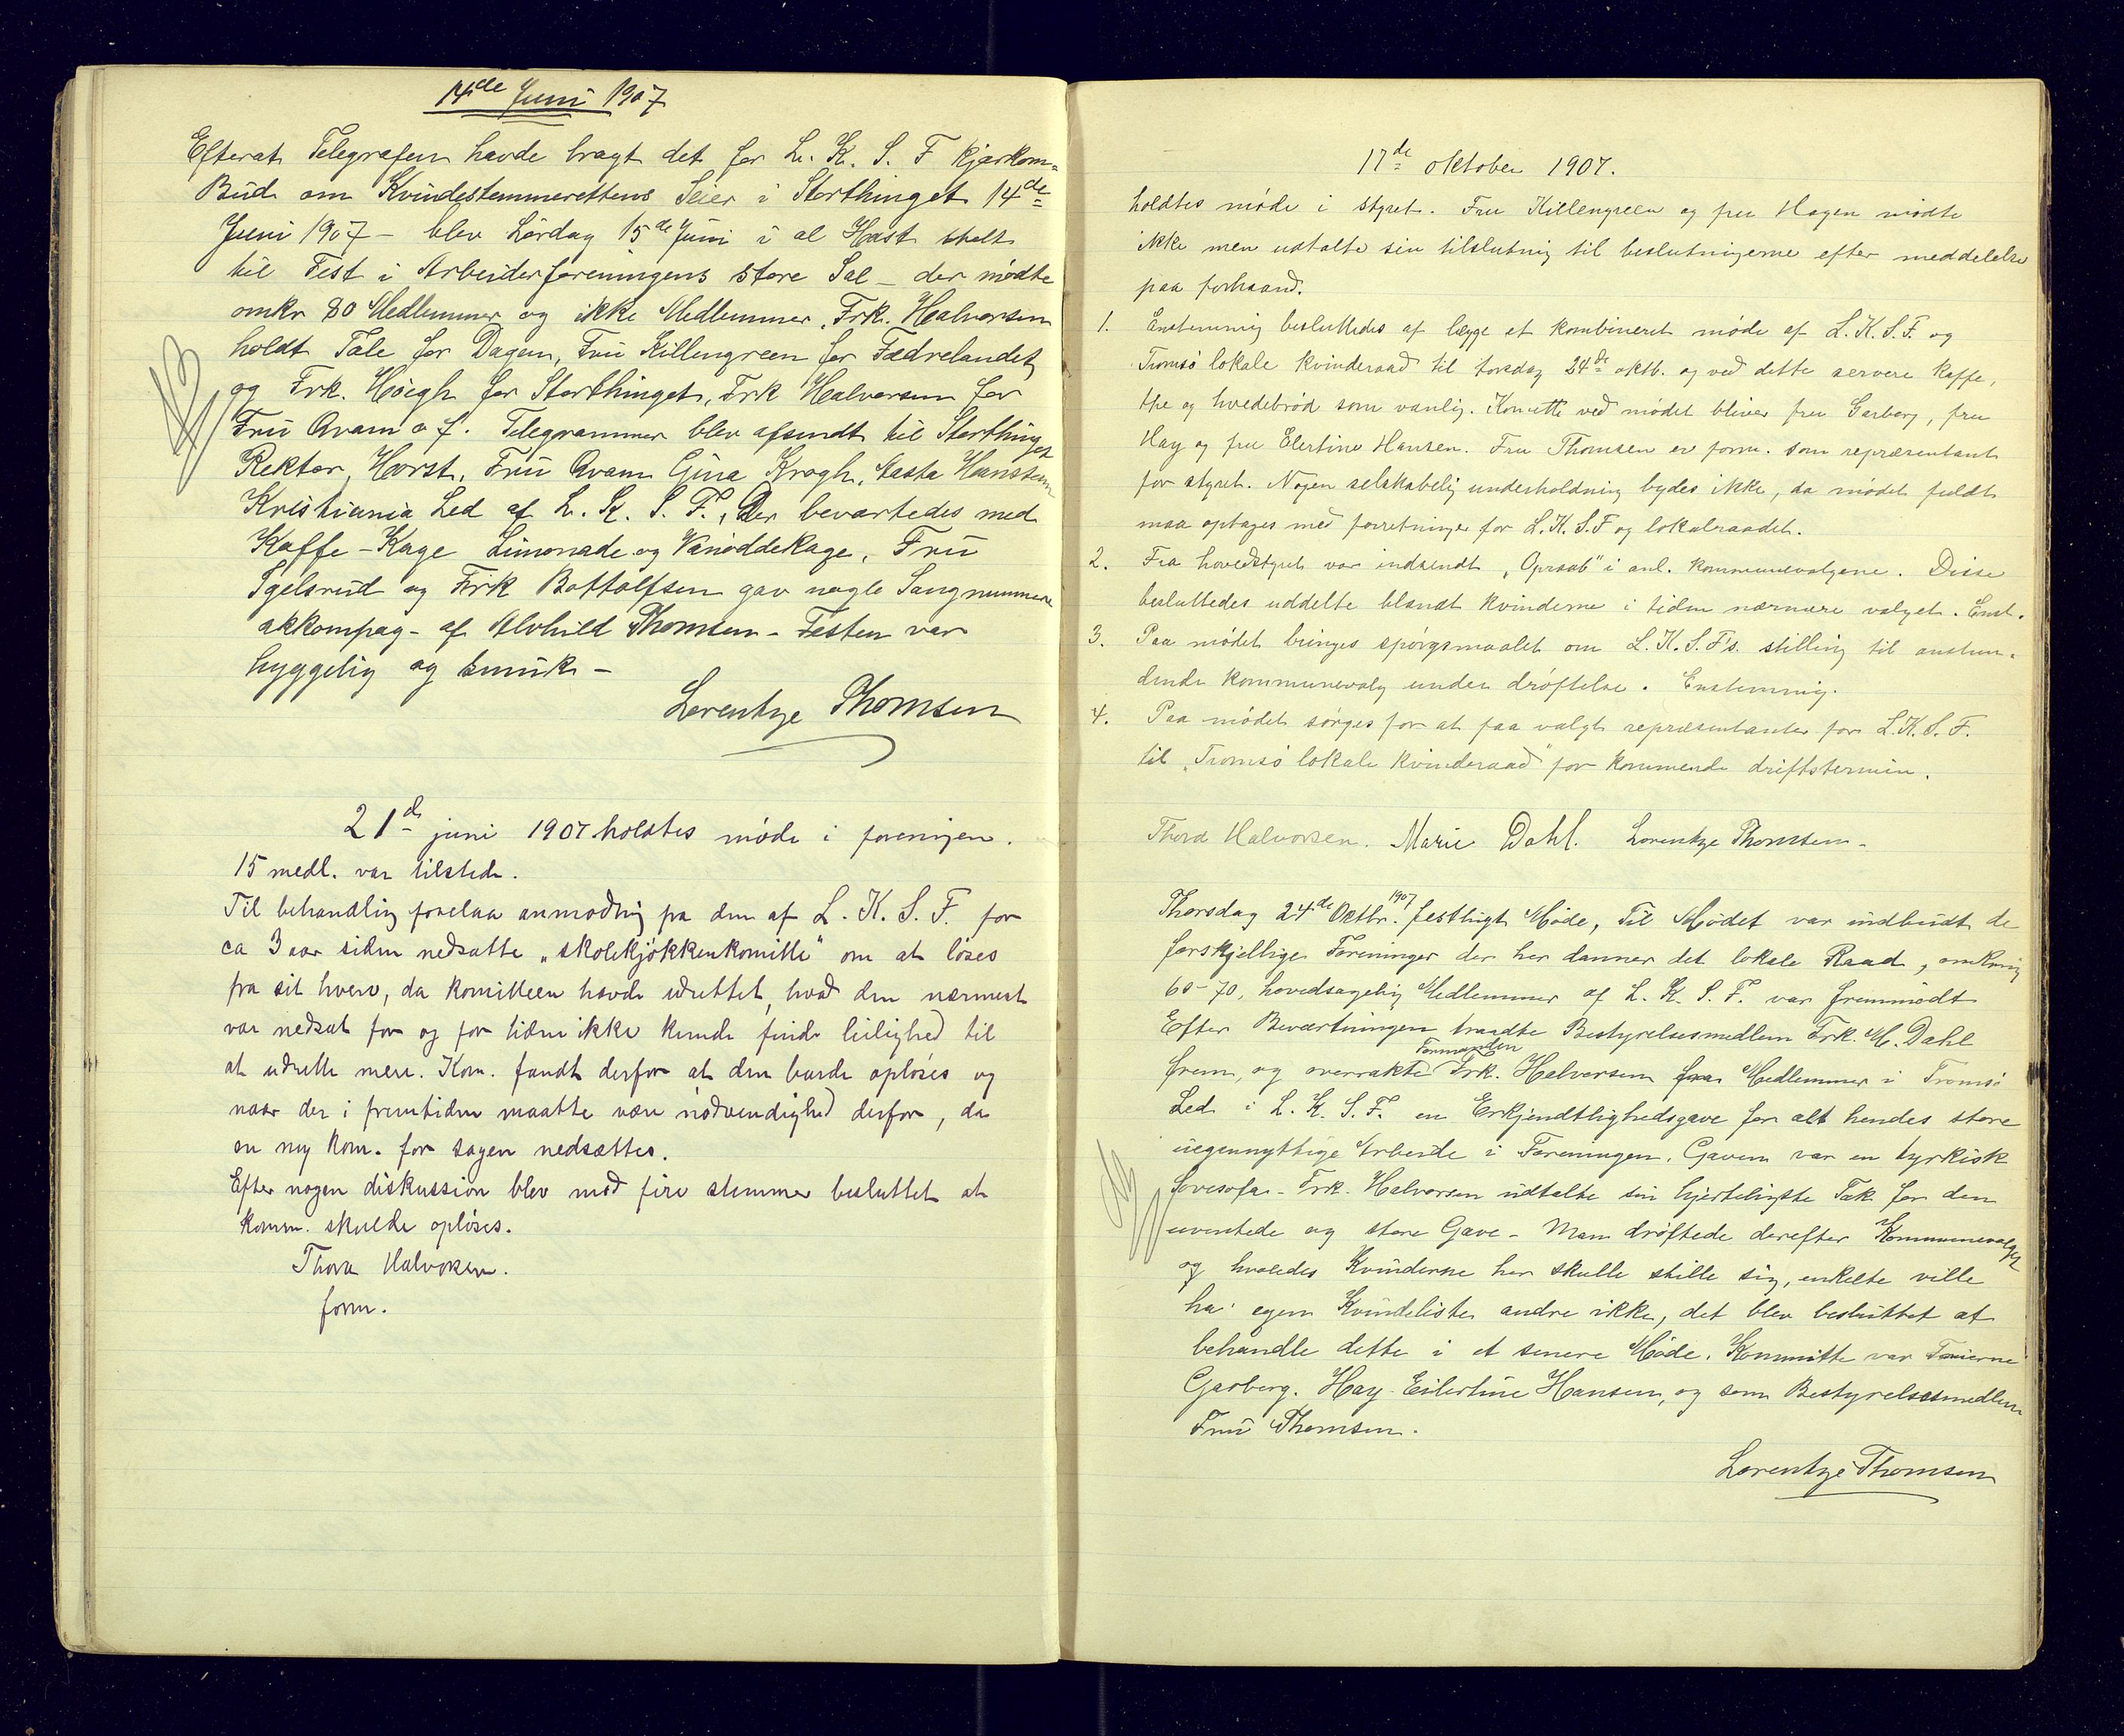 14de Juni 1907
Efterat Telegrafen havde bragt det for L. K. S. F kjærkom=
Bud om Kvindestemmerettens Seier i Storthinget 14de
Juni 1907 – blev Lørdag 15de Juni i al Hast stelt
til Fest i Arbeiderforeningens store Sal – der mødte
omkr 80 Medlemmer og ikke Medlemmer. Frk. Halvorsen
holdt Tale for Dagen, Fru Killengreen for Fædrelandet
og Frk. Høegh for Storthinget, Frk Halvorsen for
Fru Qvam o f. Telegrammer blev afsendt til Storthinget
Rektor Horst, Fru Qvam Gina Krogh, Aasta Hansteen
Kristiania Led af L. K. S. F., Der beværtedes med
Kaffe – Kage Limonade og Vanøddekage, Fru
Igelsrud og Frk Bottolfsen gav nogle Sangnummere
akkompag – af Alvhild Thomsen – Festen var
hyggelig og smuk –
Lorentze Thomsen
21de juni 1907 holdtes møde i foreningen.
15 medl. var tilstede.
Til behandling forelaa anmodning fra den af L. K. S. F. for
ca 3 aar siden nedsatte „skolekjøkkenkomitte" om at løses
fra sit hverv, da komitteen havde udrettet, hvad den nærmest
var nedsat for og for tiden ikke kunde finde leilighed til
at udrette mere. Kom. fandt derfor at den burde opløses og
naar der i fremtiden maatte være nødvendighed derfor, da
en ny kom. for sagen nedsættes.
Efter nogen diskussion blev mod fire stemmer besluttet at
komm. skulde opløses.
Thora Halvorsen.
form.
17de oktober 1907.
holdtes møde i styret. Fru Killengreen og fru Hagen mødte
ikke men udtalte sin tilslutning til beslutningerne efter meddelelse
paa forhaand.
1. Enstemmig besluttedes af lægge et kombineret møde af L.K.S.F. og
Tromsø lokale kvinderaad til torsdag 24de oktb. og ved dette servere kaffe,
the og hvedebrød som vanlig. Komitte ved mødet bliver fru Garberg, fru
Hay og fru Elertine Hansen. Fru Thomsen er form. som repræsentant
for styret. Nogen selskabelig underholdning bydes ikke, da mødet fuldt
maa optages med forretninger for L.K.S.F og lokalraadet.
2. Fra hovedstyret var indsendt „Opraab" i anl. kommunevalgene. Disse
besluttedes uddelte blandt kvinderne i tiden nærmere valget. Enst.
3. Paa mødet bringes spørgsmaalet om L.K.S.F's. stilling til anstun=
dende kommunevalg under drøftelse. Enstemmig.
4. Paa mødet sørges for at faa valgt repræsentanter for L.K.S.F.
til „Tromsø lokale kvinderaad" for kommende driftstermin.
Thora Halvorsen. Marie Dahl. Lorentze Thomsen –
Thorsdag 24de Oktbr. 1907 festligt Møde, Til Mødet var indbudt de
forskjellige Foreninger der her danner det lokale Raad, omkring
60–70, hovedsagelig Medlemmer af L. K. S. F. var fremmødt
Efter Beværtningen traadte Bestyrelsesmedlem Frk. M. Dahl
frem, og overrakte Formanden Frk. Halvorsen fra Medlemmer i Tromsø
Led i L. K. S. F. en Erkjendtlighedsgave for alt hendes store
uegennyttige Arbeide i Foreningen. Gaven var en tyrkisk
Sovesofa – Frk. Halvorsen udtalte sin hjerteligste Tak for den
uventede og store Gave – Man drøftede derefter Kommunevalget
og hvoledes Kvinderne her skulle stille sig, enkelte ville
ha' egen Kvindeliste andre ikke, det blev besluttet at
behandle dette i et senere Møde. Kommitte var Fruerne
Garberg. Hay – Eilertine Hansen, og som Bestyrelsesmedlem
Fru Thomsen.
Lorentze Thomsen